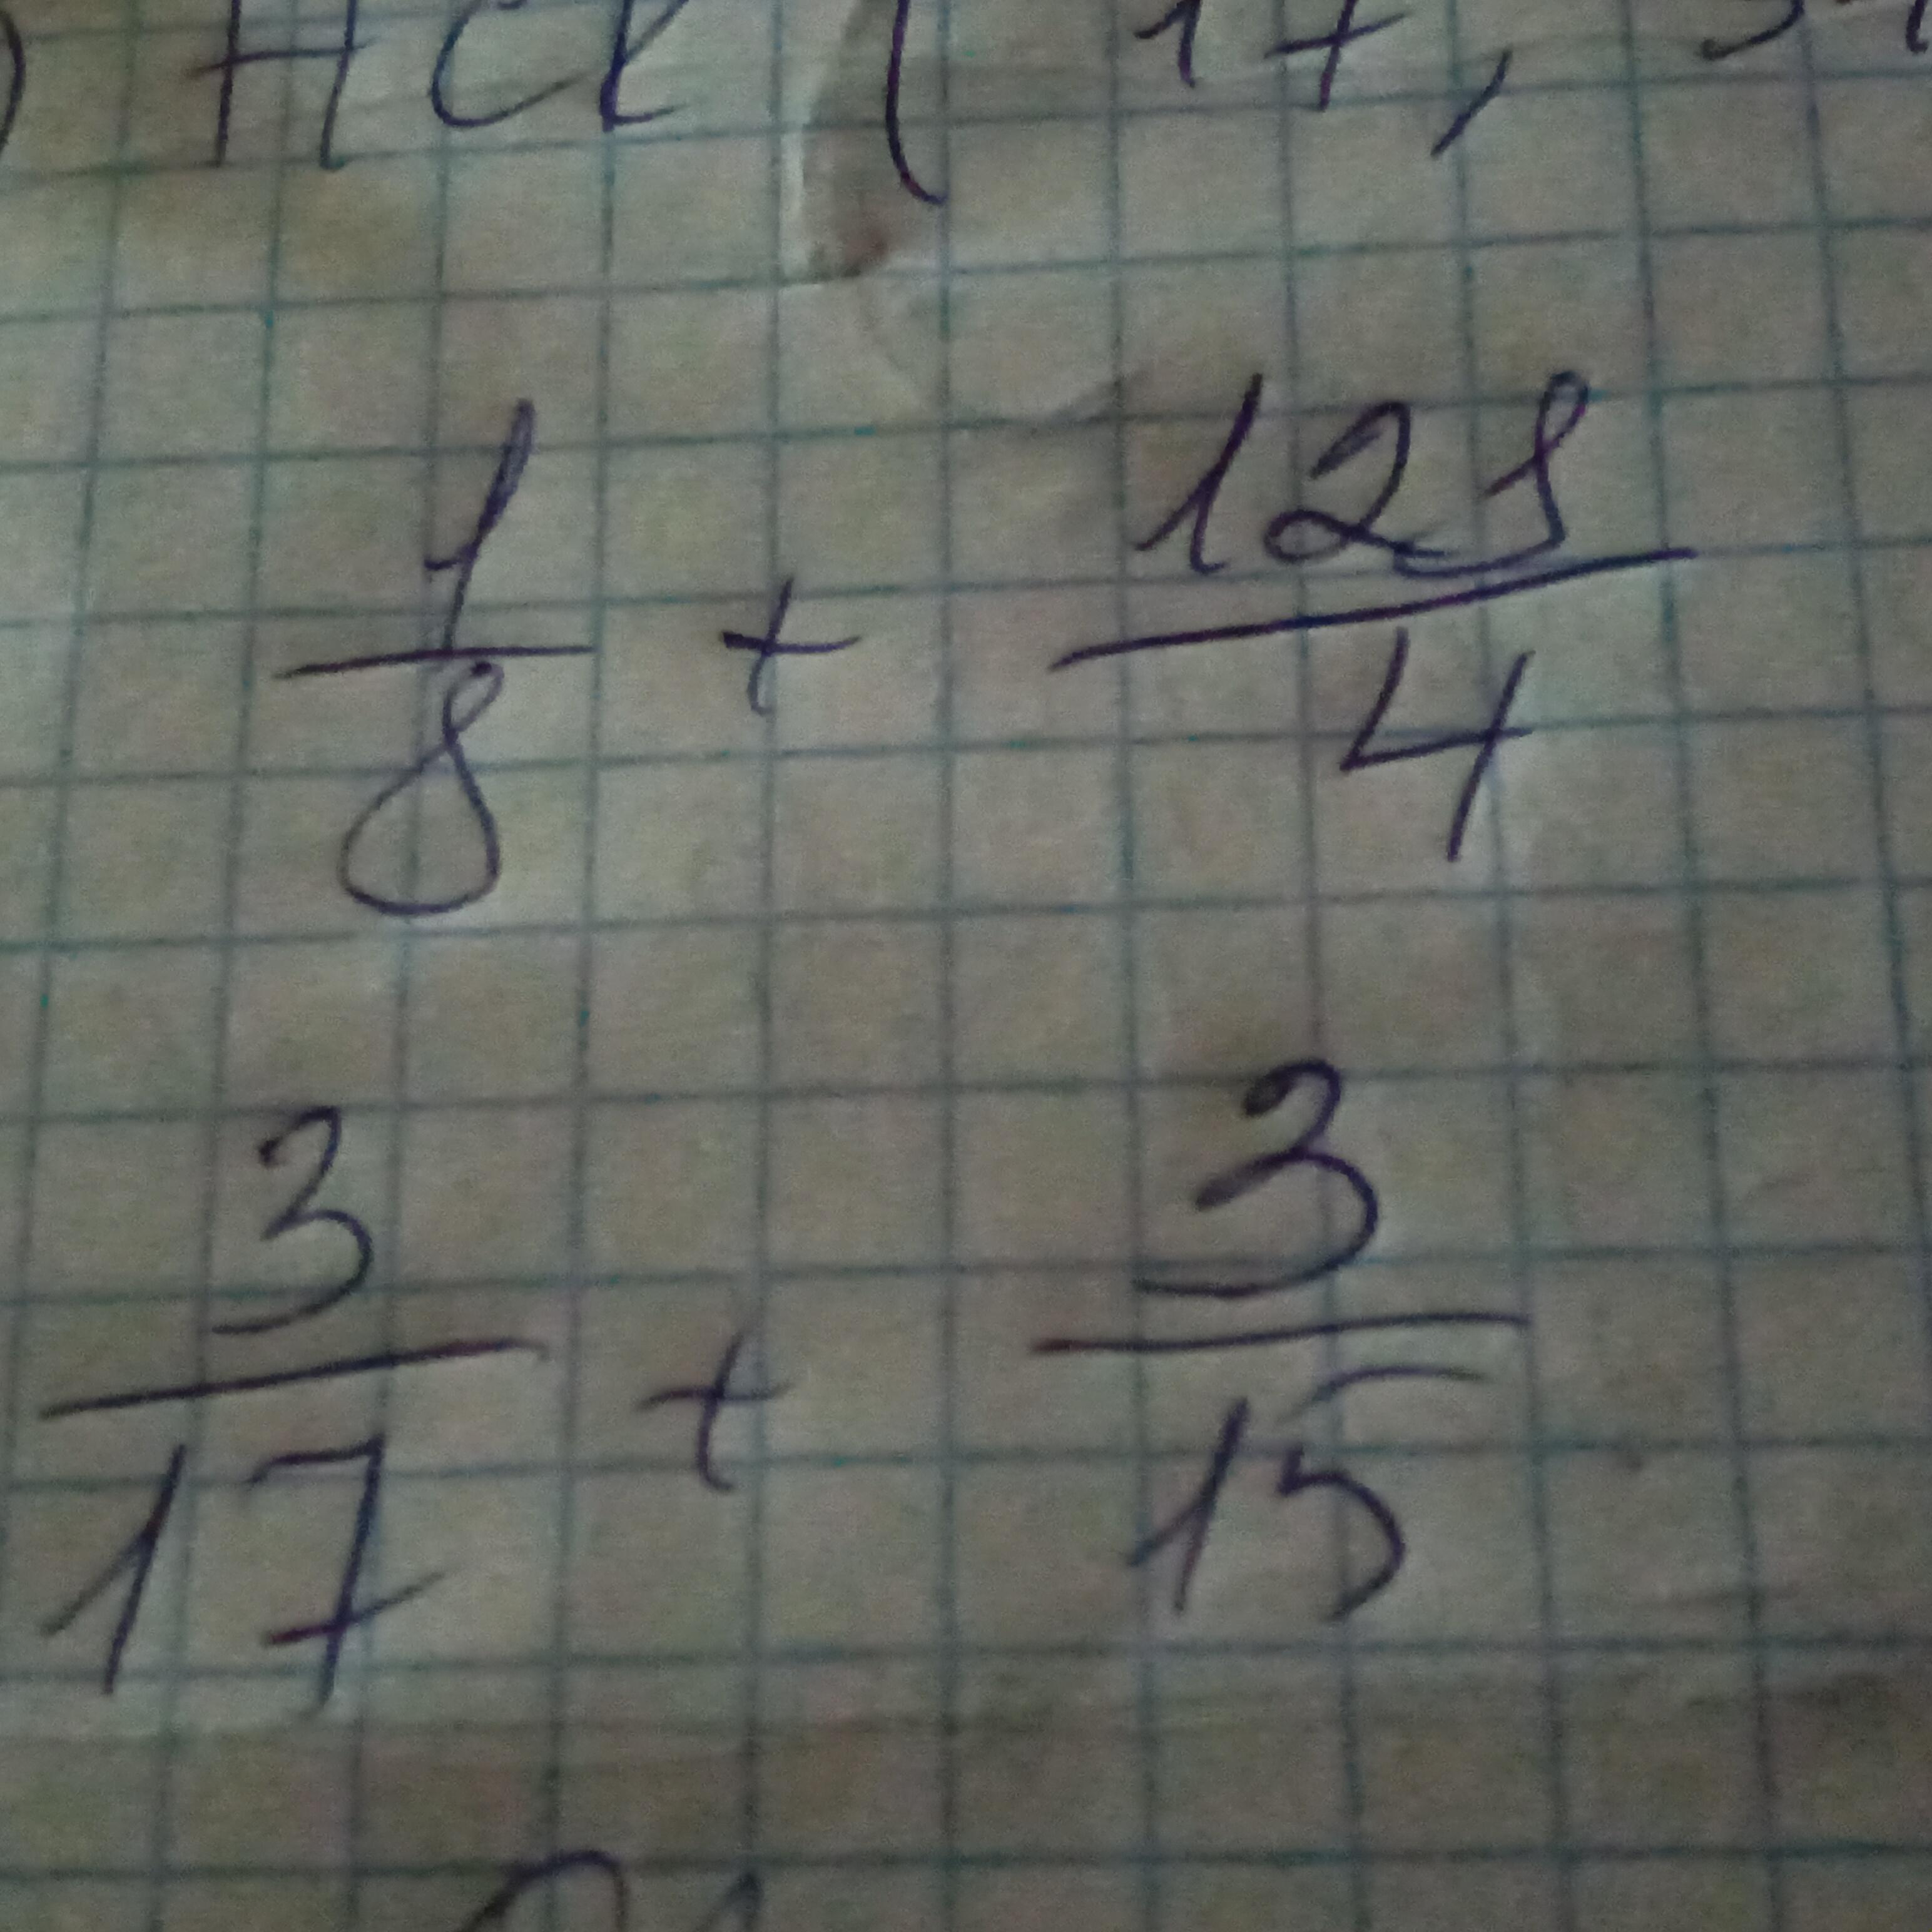 НСК ( 17,
1/8 + 128/4
3/17 + 3/15